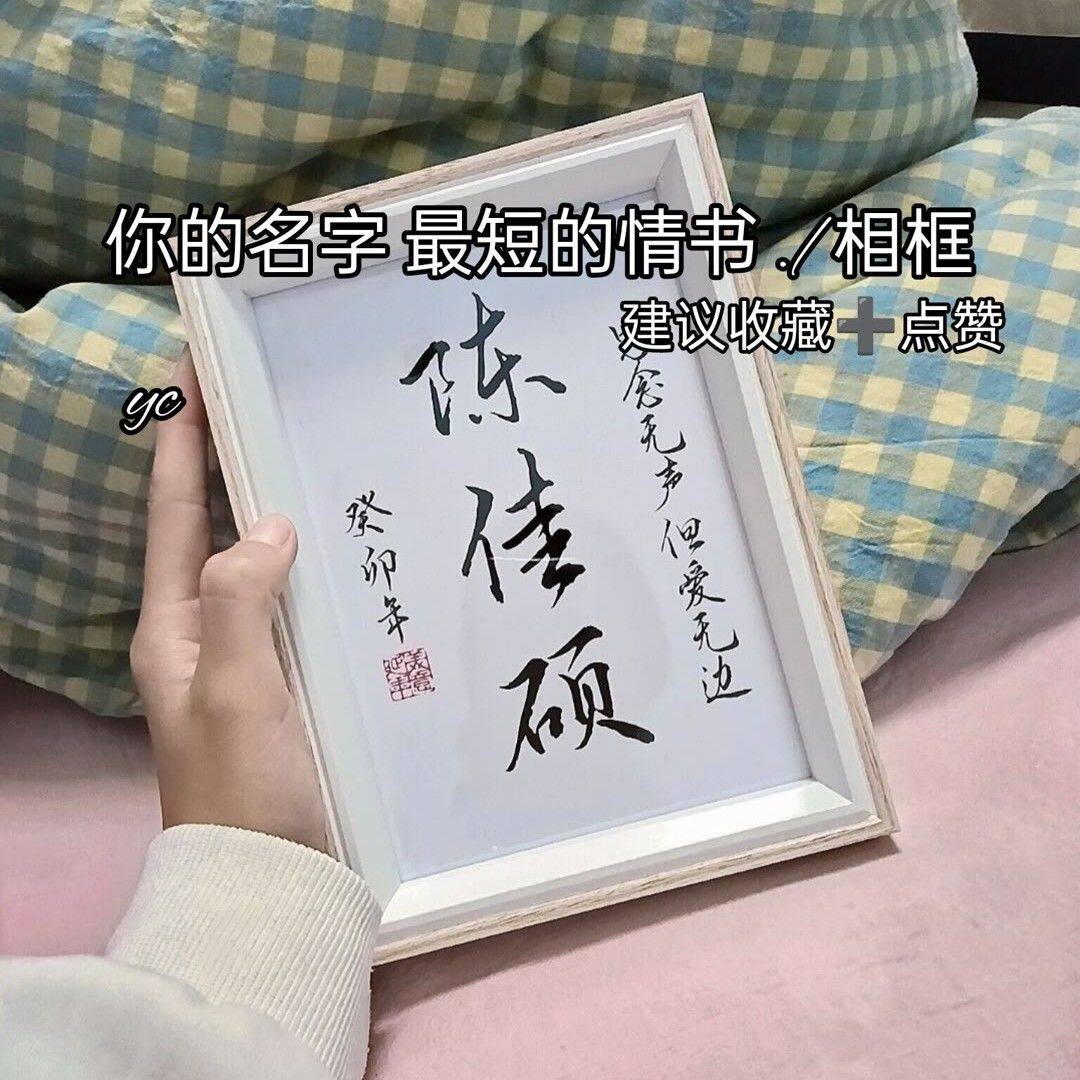 你的名字 最短的情书 ./相框
建议收藏➕点赞
yc
愈无声但爱无边
陈佳硕
癸卯年